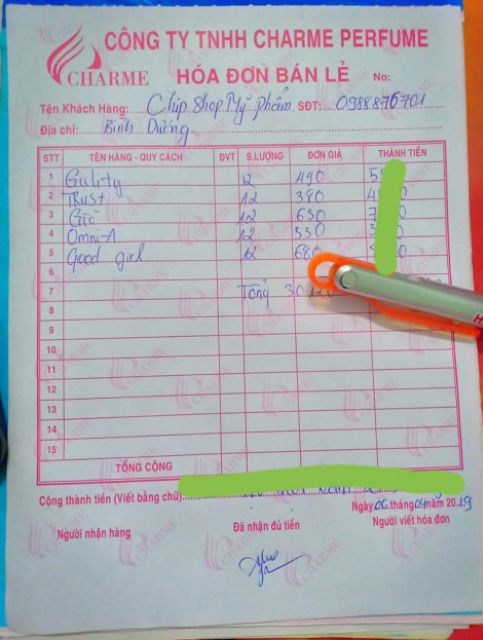 CÔNG TY TNHH CHARME PERFUME
CHARME
HÓA ĐƠN BÁN LẺ No:
Tên Khách Hàng: Chip.Shop.Mỹ phẩm SĐT: 0988876701
Địa chỉ: Bình Dương
STT TÊN HÀNG - QUY CÁCH ĐVT S.LƯỢNG ĐƠN GIÁ THÀNH TIỀN
1 Gulity 12 490
2 Trust 12 380
3 Gió 12 630
4 Omni-A 12 330
5 Good girl 12 680
6
7 Tổng
8
9
10
11
12
13
14
15
TỔNG CỘNG
Cộng thành tiền (Viết bằng chữ)
Ngày 06 tháng 04 năm 2019
Người nhận hàng Đã nhận đủ tiền Người viết hóa đơn